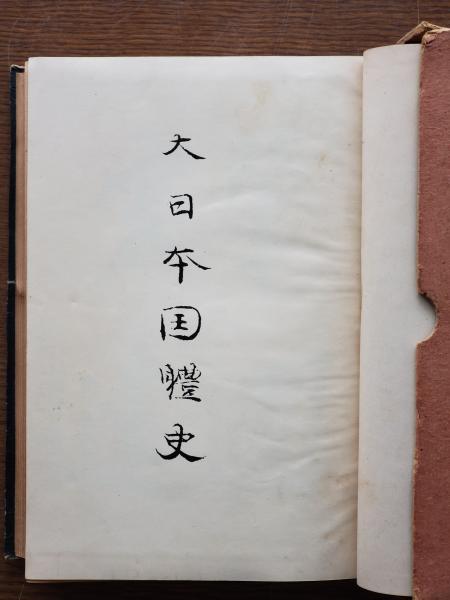 大日本国體史